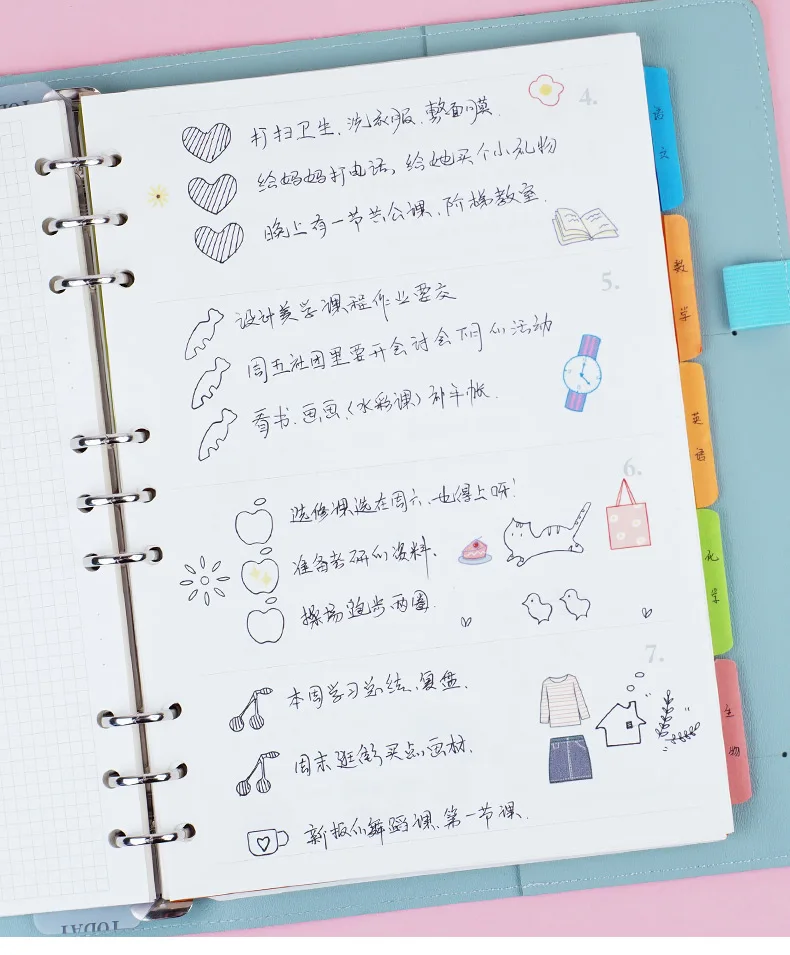 4.
打扫卫生、洗衣服、敷面膜.
给妈妈打电话，给她买个小礼物
晚上有一节共公课、阶梯教室.
5.
设计美学课程作业要交
周五社团里要开会讨会下月的活动
看书、画画、(水彩课) 补手帐.
6.
选修课选在周六、也得上呀!
准备考研的资料.
操场跑步两圈
7.
本周学习总结、复盘.
周末逛街买点画材.
新板的舞蹈课、第一节课.
语文
数学
英语
化学
生物
TODAY
TODAY